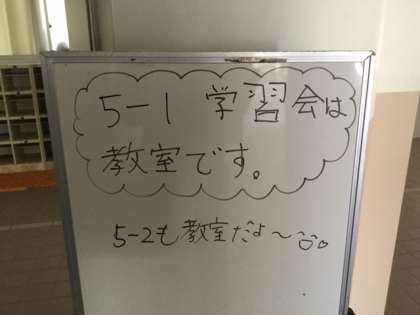 5-1 学習会は
教室です。
5-2も教室だよ〜